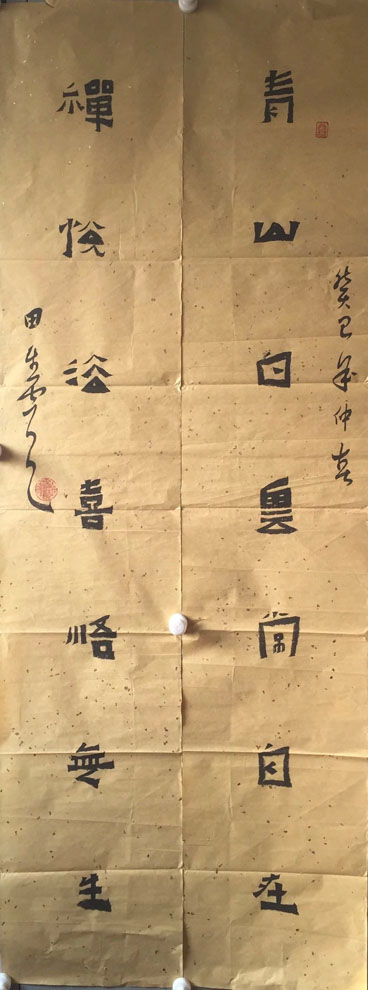 癸巳年仲春
青山白雲常自在
禪悅法喜悟無生
田